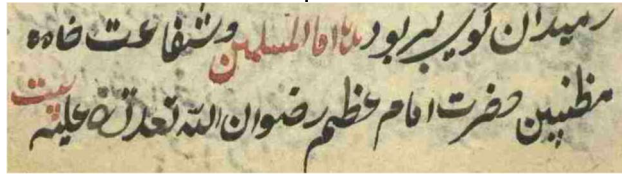 رمیدان کوی ببر بود مانا امام المسلمین و شفاعت خاده
مظنبین حضرت امام عظیم رضوان الله تعالی علیه بیت